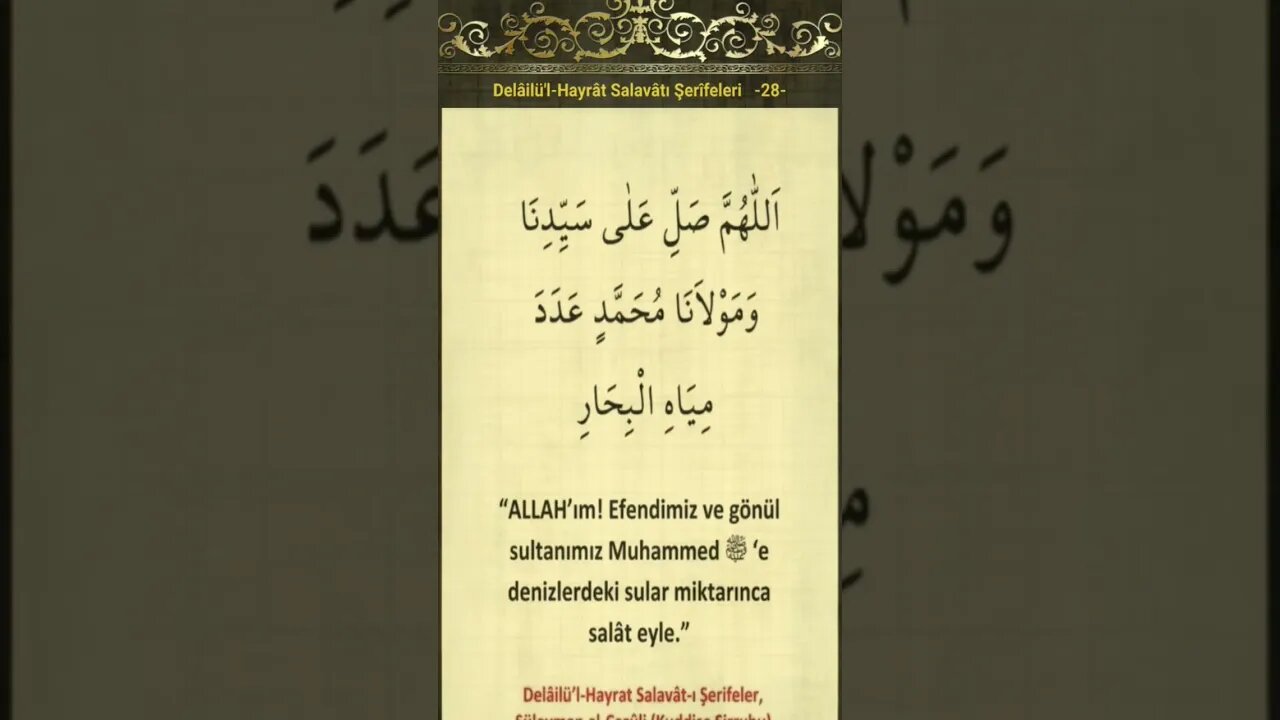 Delâilü'l-Hayrât Salavâtı Şerîfeleri -28-
اَللّٰهُمَّ صَلِّ عَلٰى سَيِّدِنَا
وَمَوْلَانَا مُحَمَّدٍ عَدَدَ
مِيَاهِ الْبِحَارِ
“ALLAH’ım! Efendimiz ve gönül
sultanımız Muhammed ﷺ ‘e
denizlerdeki sular miktarınca
salât eyle.”
Delâilü’l-Hayrat Salavât-ı Şerifeler,